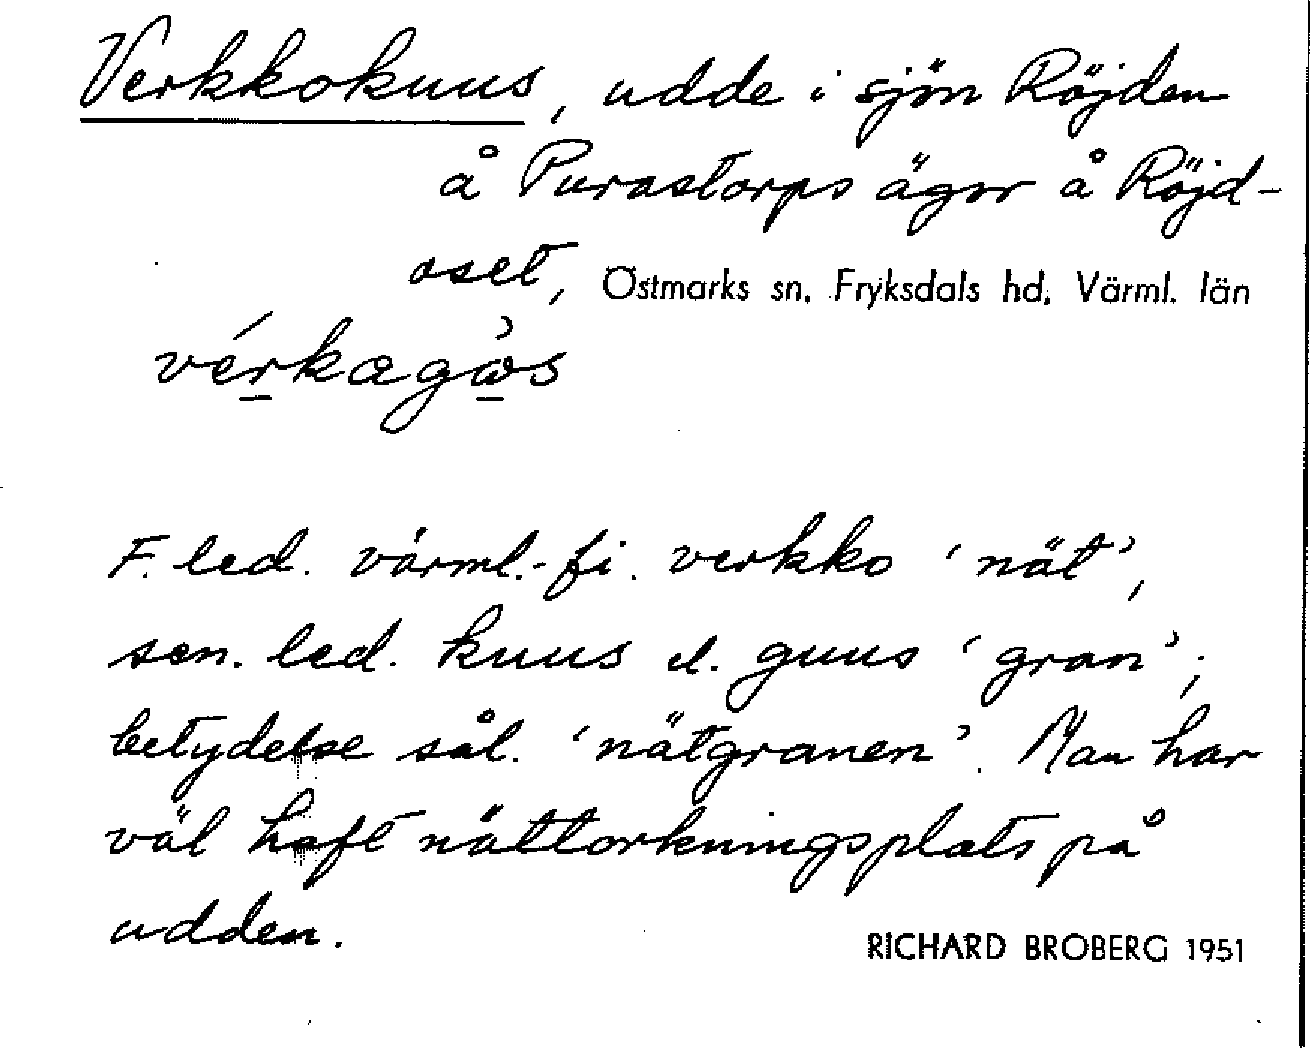 Verkkokuus, udde i sjön Röjden
å Purastorps ägor å Röjd-
oset, Östmarks sn. Fryksdals hd. Värml. län
vérkagὼs
F. led. värml.-fi. verkko 'nät',
sen. led. kuus el. guus 'gran';
betydelse sål. 'nätgranen'. Man har
väl haft nättorkningsplats på
udden.
RICHARD BROBERG 1951